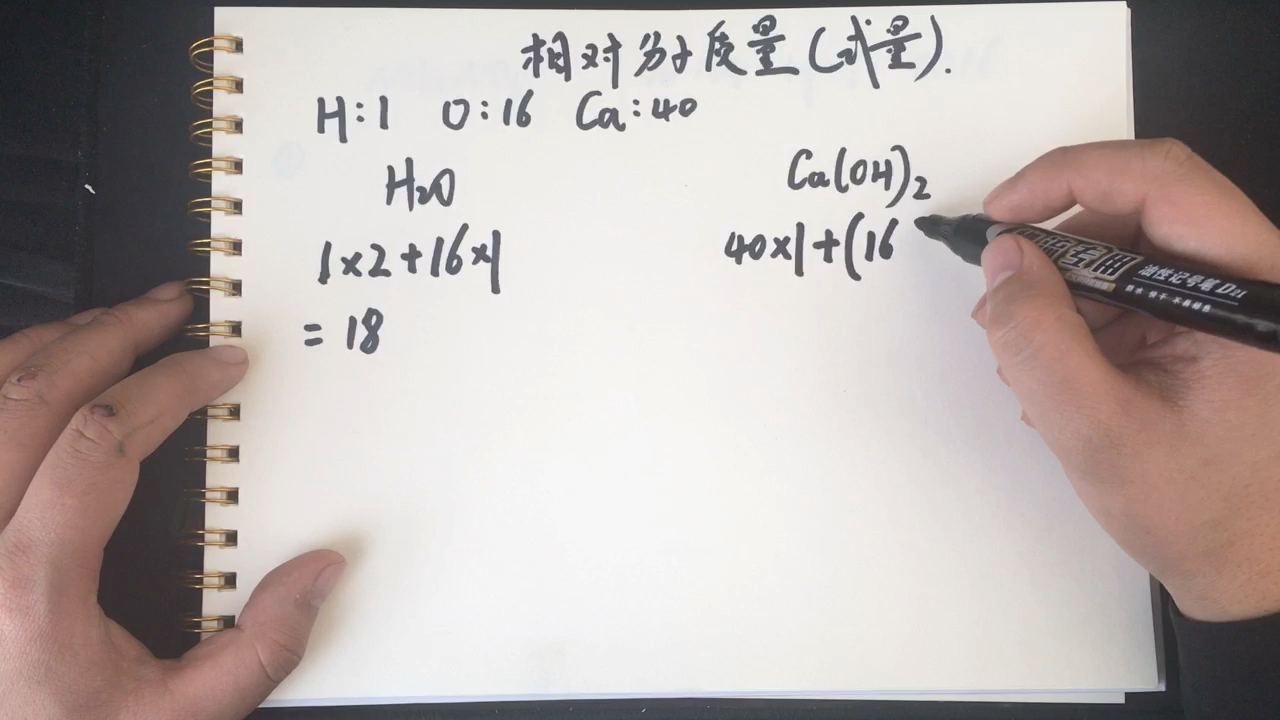 相对分子质量(式量).
H:1 O:16 Ca:40
H₂O
1×2+16×1
=18
Ca(OH)₂
40×1+(16
专用 油性记号笔 D21